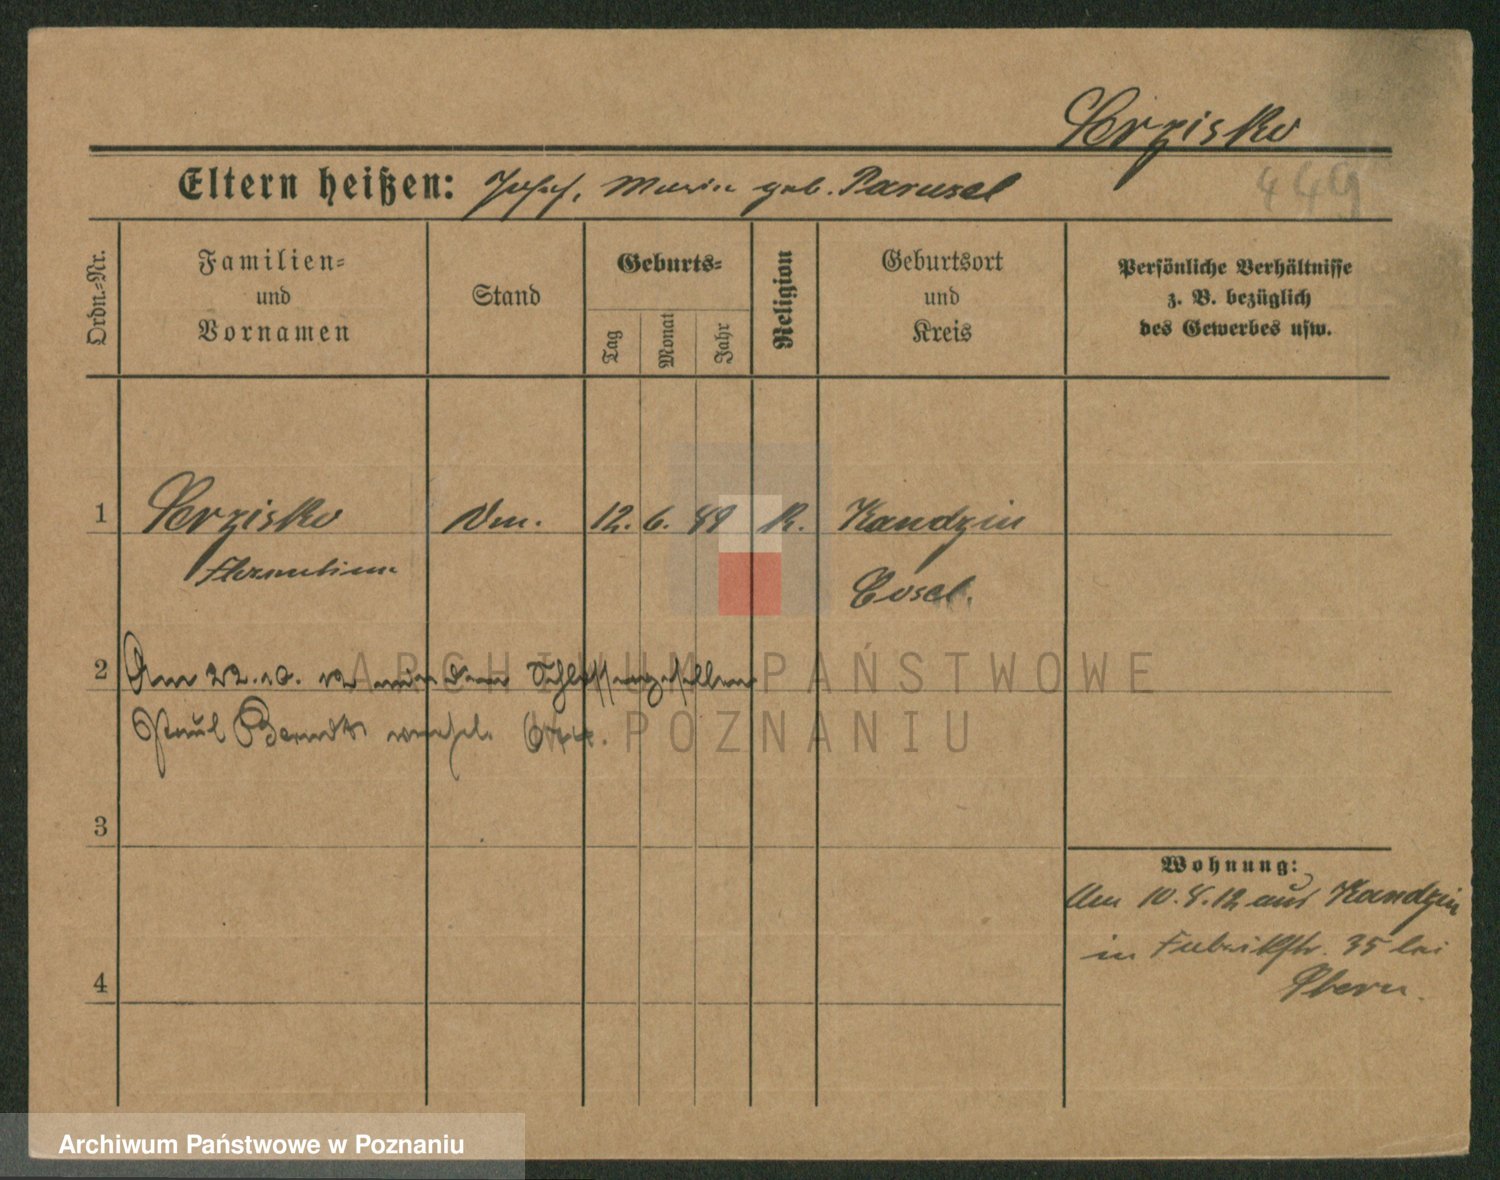 449
Eltern heißen: Josef, Maria geb. Parusel
Ordn.=Nr.
Familien=
und
Vornamen
Stand
Geburts=
Tag
Monat
Jahr
Religion
Geburtsort
und
Kreis
Persönliche Verhältnisse
z. B. bezüglich
des Gewerbes usw.
1 12. 6. 89 K. Kandzin
Cosel.
2 Am 22.10.12 mit dem Schlossergesellen
Paul Berndt
3
4
Wohnung:
Am 10.8.12 aus Kandzin
in Fabrikstr. 35 bei
ARCHIWUM PAŃSTWOWE
W POZNANIU
Archiwum Państwowe w Poznaniu